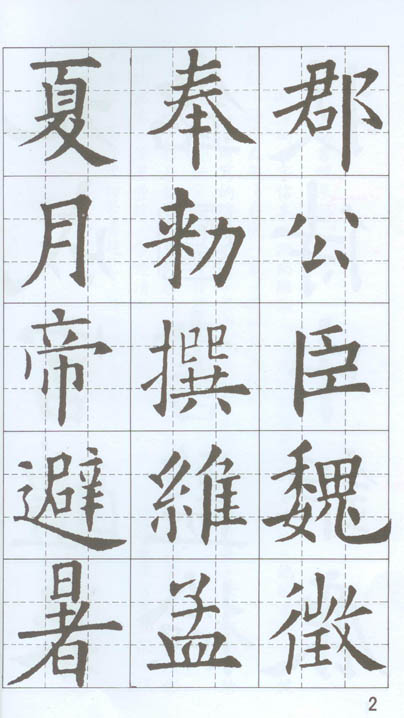 郡公臣魏徵
奉勑撰維孟
夏月帝避暑
2